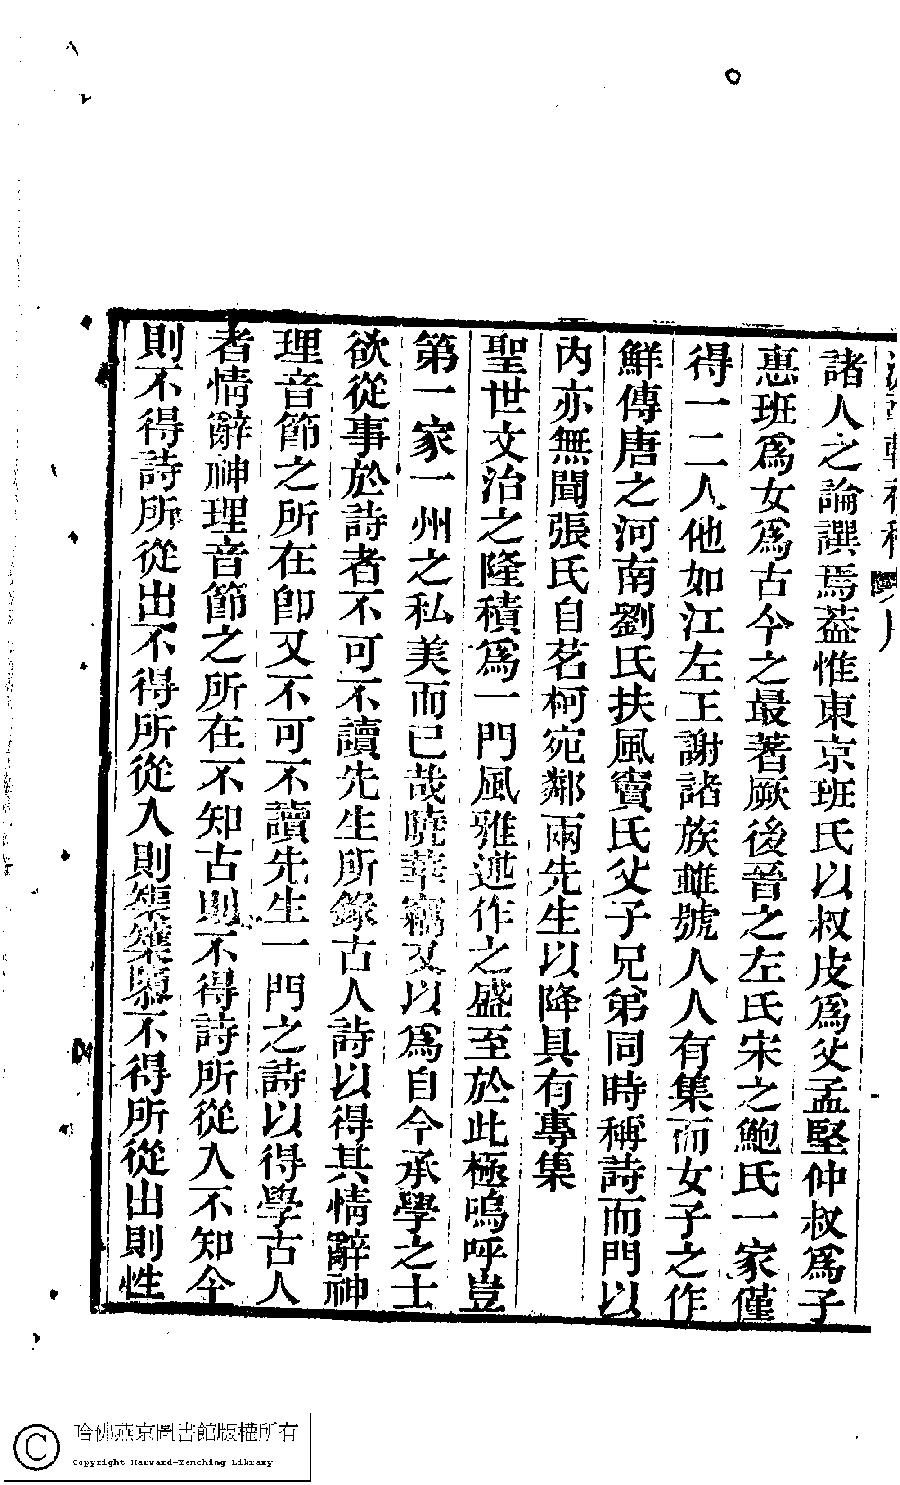 諸人之論譔焉葢惟東京班氏以叔皮爲父孟堅仲叔爲子
惠班爲女爲古今之最著厥後晉之左氏宋之鮑氏一家僅
得一二人他如江左王謝諸族雖號人人有集而女子之作
鮮傳唐之河南劉氏扶風竇氏父子兄弟同時稱詩而門以
內亦無聞張氏自茗柯宛鄰兩先生以降具有專集
聖世文治之隆積爲一門風雅述作之盛至於此極嗚呼豈
第一家一州之私美而已哉曉華竊又以爲自今承學之士
欲從事於詩者不可不讀先生所錄古人詩以得其情辭神
理音節之所在卽又不可不讀先生一門之詩以得學古人
者情辭神理音節之所在不知古則不得詩所從入不知今
則不得詩所從出不得所從入則榘籆隳不得所從出則性
哈佛燕京圖書館版權所有
Copyright Harvard-Yenching Library